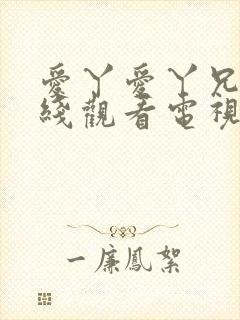 愛丫愛丫兄
綫觀看電視
一廉鳳絮